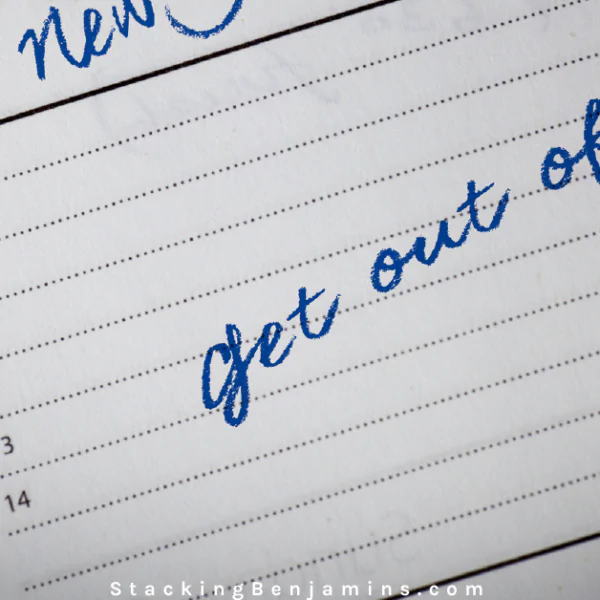 New
get out of
3
14
StackingBenjamins.com